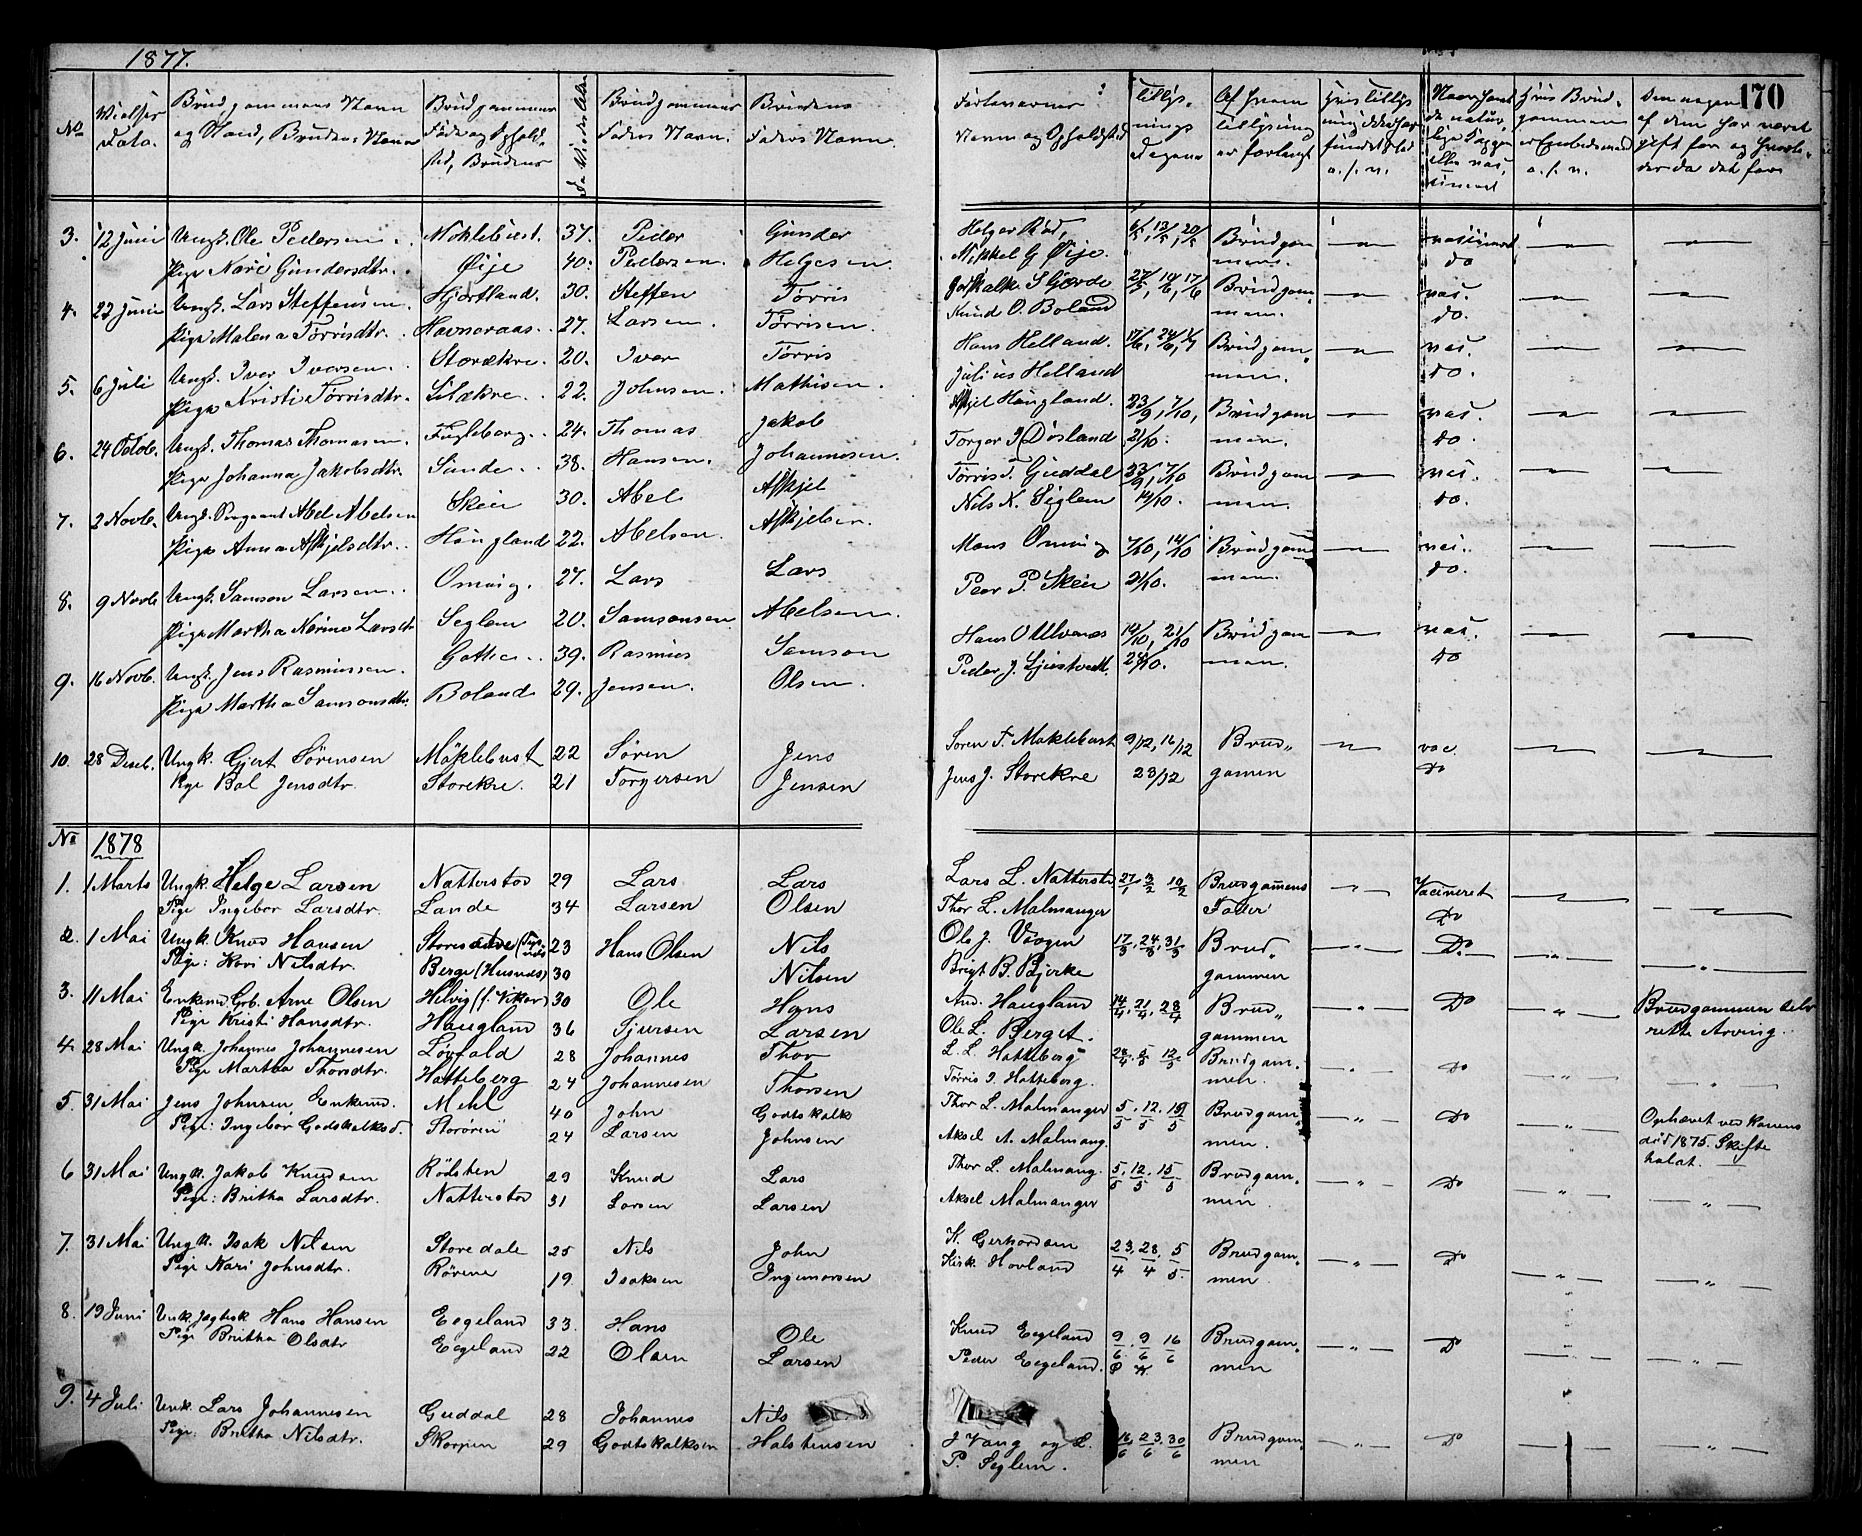 1877.
No
Vielses
Dato.
Brudgommens Navn
og Stand, Brudens Navn
Brudgommens
Føde og Opholds
sted, Brudens
Brudgommens
Faders Navn.
Brudens
Faders Navn.
Forlovernes
Navn og Opholdssted
Tillys-
nings
Dagene
Af hvem
Tillysning
er forlangt
170
3. 12 Juni Ungk. Ole Pedersen. Moklebust. 37. Peder Gunder
Pige Nari Gundersdtr. Øije 40. Pedersen. Helgesen.
4. 22 Juni Ungk. Lars Steffensen Hjortland. 30. Steffen Tørris
Pige Malena Tørrisdtr. Havneraas. 27. Larsen. Tørrisen.
5. 6 Juli Ungk. Iver Iversen. Storækre. 20. Iver Tørris
Pige Kristi Tørrisdtr. Lilækre. 22. Johnsen. Mathisen.
6. 24 Octob. Ungk. Thomas Thomasen. Fugleberg. 24. Thomas Jakob
Pige Johanna Jakobsdtr. Sunde. 38. Hansen. Johannesen.
7. 2 Novb. Ungk. Abel Abelsen Skeie 30. Abel Askjel
Pige Anna Askjelsdtr. Haugland 22. Abelsen. Askjelsen.
8. 9 Novb Ungk. Samson Larsen. Omvig. 27. Lars Lars
Pige Martha Nerine Larsdtr Seglem 20. Samsonsen Abelsen.
9. 16 Novb. Ungk. Jens Rasmussen. 39. Rasmus Samson
Pige Martha Samsonsdtr. Boland 29. Jensen. Olsen.
10. 28 Decb. Ungk. Gjert Sørensen Møklebust 22 Søren Jens
Pige Bol Jensdtr. Storekre. 21 Torgersen Jensen
Helge Rød,
Mikkel G Øije. 6/5, 13/5, 20/5 Brudgom
mens. vaccineret
do
27/5, 10/6, 17/6 Brudgom
Knud O. Boland men. vac.
do.
Hans Helland. 17/6, 24/6, 1/7 Brudgom
Julius Helland men. vac.
do.
Askjel Haugland. 23/9, 7/10, Brudgom
Torger J Døsland 21/10. men. vac.
do.
Tørris T. Guddal 23/9, 7/10 Brudgom
Nils N. Seglem 14/10. men. vac.
do.
Mons Omvig 7/10, 14/10 Brudgom
Peer P. Skeie 21/10. men. vac.
do.
Hans O Ulvenes 14/10, 21/10 Brudgom
Peder J. 28/10. men. vac.
do
Søren T. Møklebust 9/12, 16/12 Brud„ vac
Jens J. Storekre 23/12 gomen Do
No 1878
1. 1 Marts Ungk. Helge Larsen Natterstad 29 Lars Lars
Pige Ingebor Larsdtr. Lande 34 Larsen Olsen
2. 1 Mai Ungk. Knud Hansen 23 Hans Olsen Nils
Pige: Kari Nilsdtr. Berge (Husnæs) 30 Nilsen
3. 11 Mai Enkemd Grb. Arne Olsen Helvig (f. Vikør) 30 Ole Hans
Pige Kristi Hansdtr. Haugland 36 Sjursen Larsen
4. 28 Mai Ungk. Johannes Johannesen Løvfald 28 Johannes Thor
Pige Martha Thorsdtr. Hatteberg 24 Johannesen Thorsen
5. 31 Mai Jens Johnsen, Enkemd. Mehl 40 John Godtskalk
Pige: Ingebor Godskalksd. Storøren 24 Larsen Johnsen
6 31 Mai Ungk. Jakob Knudsen Rødsten 29 Knud Lars
Pige: Britha Larsdtr. Natterstad 31 Larsen Larsen
7. 31 Mai Ungk. Isak Nilsen Storedale 25 Nils John
Pige Kari Johnsdtr. Rørene 19. Isaksen Ingemorsen
8. 19 Juni Unk. Jægtesk Hans Hansen Eegeland 33. Hans Ole
Pige Britha Olsdtr Eegeland 22 Olsen Larsen
9. 4 Juli Unk. Lars Johannesen Guddal 28 Johannes Nils
Pige: Britha Nilsdtr. Skorpen 29 Godtskalksen Halstensen
Lars L. Natterstad 27/1 3/2 10/2 Brudgomens Vaccineret
Thor L. Malmanger Fader Do
Ole J. Vaagen 17/3. 24/3. 31/3 Brud„ Do.
Brigt B. Bjerke gommen
And. Haugland 14/4. 21/4. 28/4 Brud„ Do Brudgommen selv
Ole L. Berget. gommen rette Arving.
L. L. Hatteberg 28/4. 5/5 12/5 Brudgom„ Do
Tørris J. Hatteberg. men.
Thor L. Malmanger 5/5. 12/5. 19/5 Brudgom„ Do Ophævet ved Konens
Aksel A. Malmang. men. død 1875. Skifte
holdt.
Thor L. Malmang. 5/5. 12/5. 15/5 Brudgom„ Do
Aksel Malmanger men
K. Gerhardsen 23/4. 28/4. 5/5. Brudgom„ Do
Kirk. Hovland men
Knud Eegeland 9/6. 9/6 16/6 Brudgom„ Do
Peder Eegeland. men
J Vaag og L. 16/6 23/6. 30/6 Brudgom„ Do
P. Seglem. men